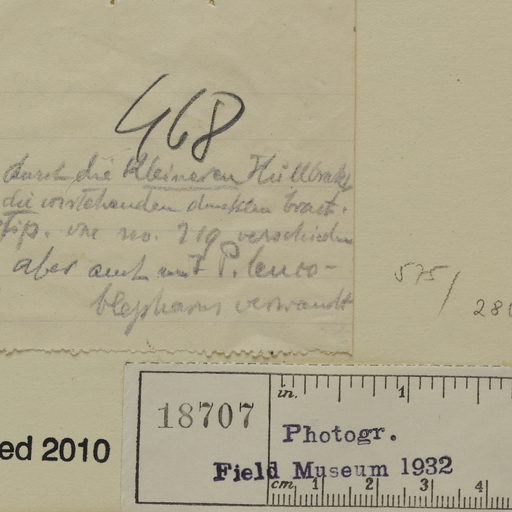 468
durch die kleineren Hüllbrakt
die vorstehenden dunklen bract.
stip. von no. 719 verschieden
aber auch mit P. leuco-
blepharus verwandt
575/
286
18707
in. 1
Photogr.
Field Museum 1932
cm 1 2 3 4
ed 2010